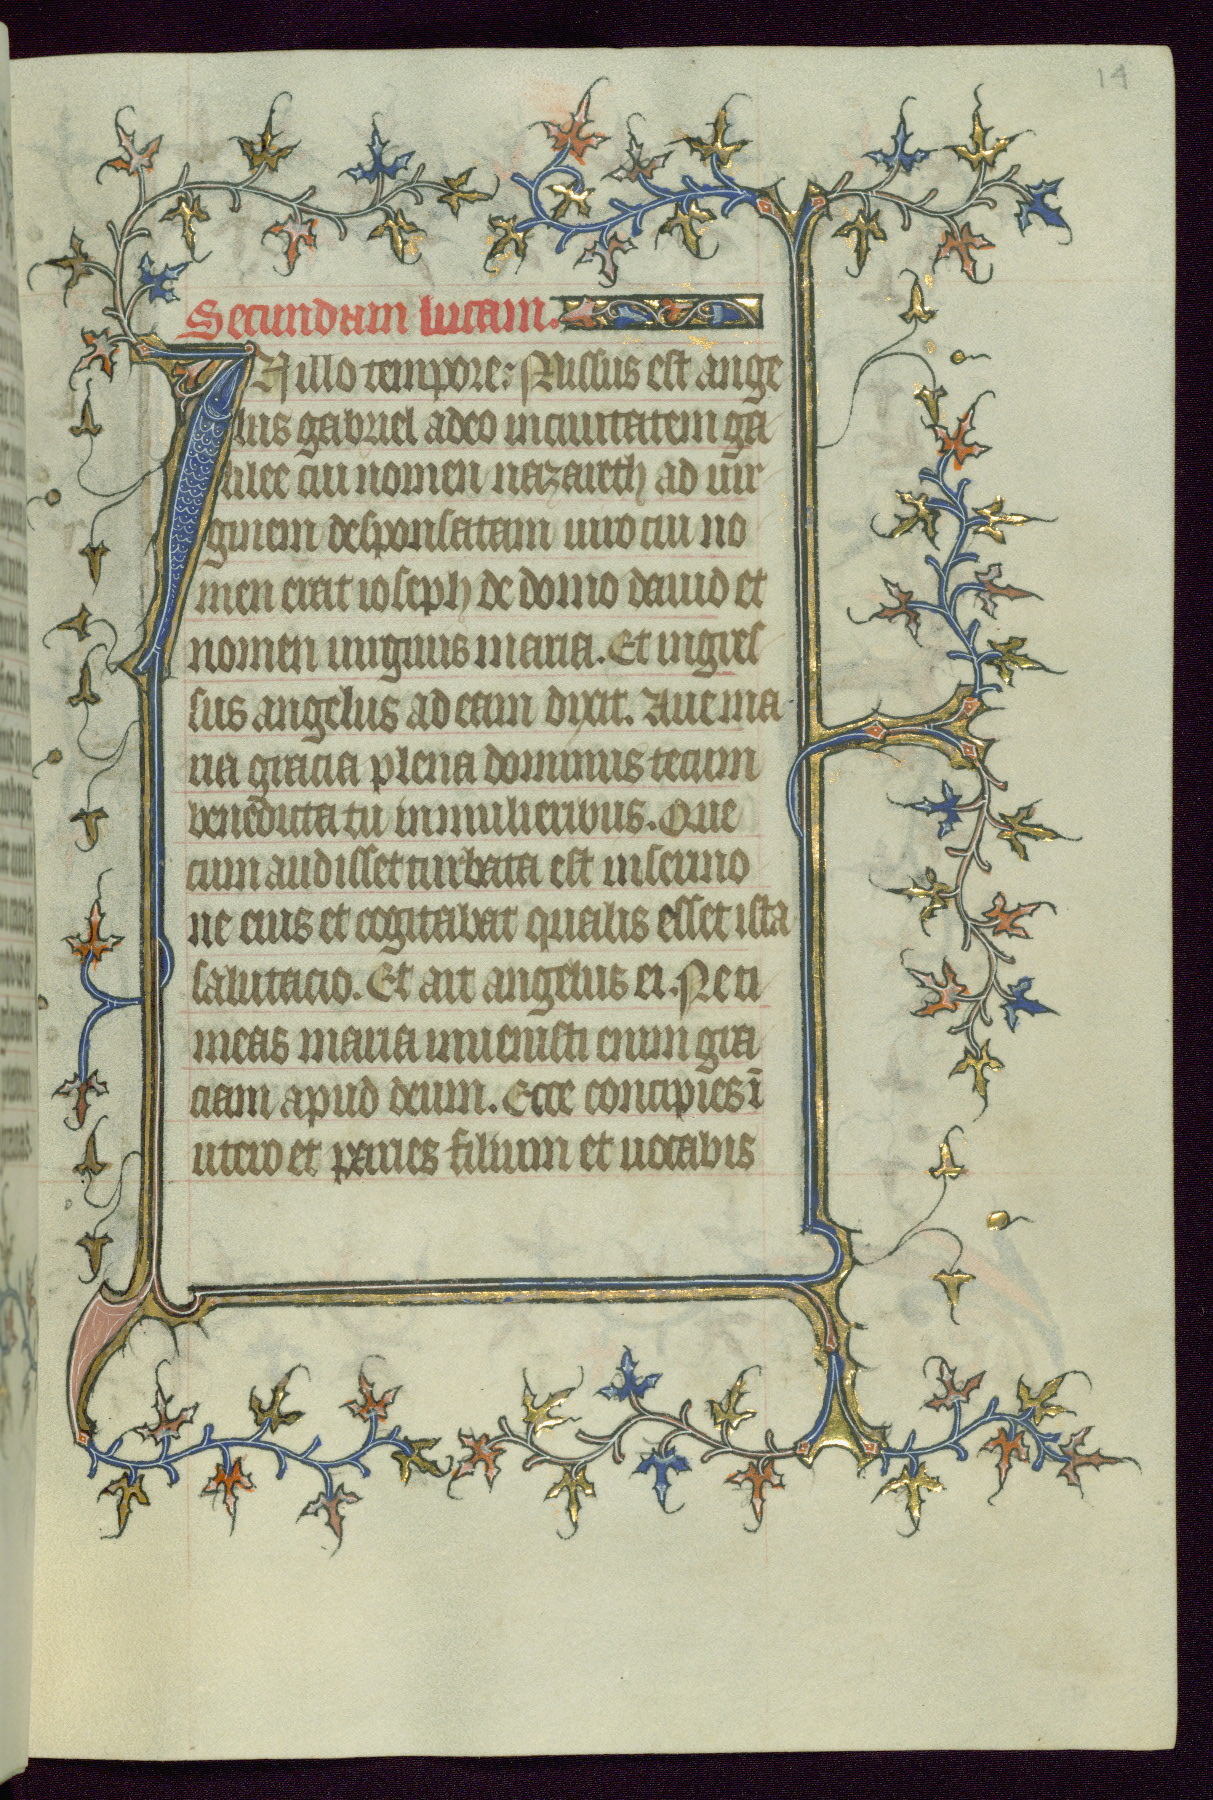 14
Secundum lucam.
IN illo tempore: Missus est ange
lus gabriel a deo in ciuitatem ga
lilee cui nomen nazareth ad uir
ginem desponsatam uiro cui no
men erat ioseph de domo dauid et
nomen uirginis maria. Et ingres
sus angelus ad eam dixit. Aue ma
ria gracia plena dominus tecum
benedicta tu in mulieribus. Que
cum audisset turbata est in sermo
ne eius et cogitabat qualis esset ista
salutacio. Et ait angelus ei. Ne ti
meas maria inuenisti enim gra
ciam apud deum. Ecce concipies ī
utero et paries filium et uocabis